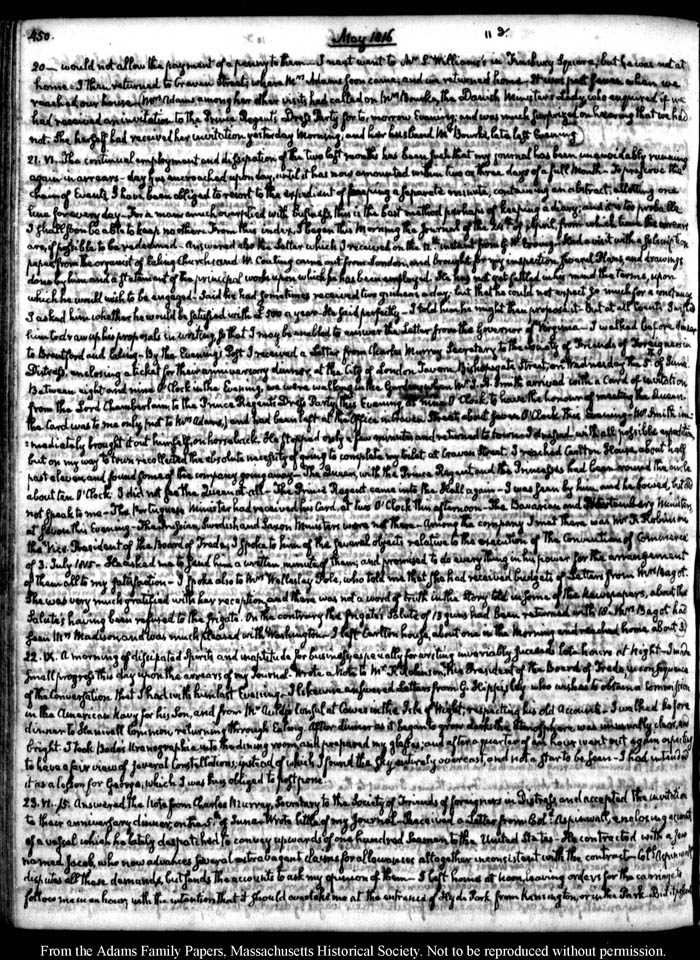 450.
May 1816
20 — would not allow the payment of a penny to them — I next went to Mr S. Williams's in Finsbury Square; but he was not at
home. I then returned to Craven Street, where Mrs Adams soon came, and we returned home. It was past seven when we
reached our house. Mrs Adams among her other visits had called on Mrs Bourke, the Danish Minister's Lady, who enquired if we
had received an invitation to the Prince Regent's Dress Party for to-morrow Evening, and was much surprized on hearing that we had
not. She herself had received her invitation yesterday Morning, and her husband Mr Bourke, late last Evening.
21. VI. The continual employment and dissipation of the two last months has been such that my journal has been unavoidably running
again in arrears — day has encroached upon day, until it has now amounted within two or three days of a full Month — To preserve the
chain of Events I have been obliged to resort to the expedient of keeping a separate minute, containing an abstract, allotting one
line for every day — For a man much overplied with business, this is the best method perhaps of keeping a diary; and it is too probable
I shall soon be able to keep no other. From this index, I began this Morning the Journal of the 24th of April, from which time the arrears
are, if possible to be redeemed. Answered also the Letter which I received on the 12th instant from G. W. Erving. Had a visit with a subscription
paper from the organist of Ealing Church; and Mr Coating came out from London, and brought for my inspection several Plans and drawings
done by him and a statement of the principal works upon which he has been employed. He has not yet settled in his mind the terms, upon
which he would wish to be engaged. Said he had sometimes received two guineas a day, but that he could not expect so much for a constancy
I asked him whether he would be satisfied with £ 500 a year. He said perfectly — I told him he might then propose it. But at all events I wished
him to draw up his proposals in writing, so that I may be enabled to answer the Letter from the Governor of Virginia — I walked before dinner
to Brentford and Ealing. By the Evening's Post I received a Letter from Charles Murray Secretary to the Society of Friends of Foreigners in
Distress, enclosing a ticket for their anniversary dinner, at the City of London Tavern, Bishopsgate Street, on Wednesday the 5th of June.
Between eight and nine O'Clock in the Evening, we were walking in the Garden, when Mr J. A. Smith arrived with a Card of invitation
from the Lord Chamberlain, to the Prince Regent's Dress Party this Evening at nine O'Clock to have the honour of meeting the Queen.
the Card was to me only (not to Mrs Adams,) and had been left at the Office in Craven Street about seven O'Clock this Evening. Mr Smith im-
=mediately brought it out himself, on horseback. He stopped only a few minutes and returned to town. I dressed with all possible expedition
but on my way to town recollected the absolute necessity of going to complete my toilet at Craven Street. I reached Carlton House about half
past eleven, and found some of the company going away. The Queen, with the Prince Regent and the Princesses had been round the circle
about ten O'Clock. I did not see the Queen at all — The Prince Regent came into the Hall again — I was seen by him, and he bowed, but did
not speak to me — The Portuguese Minister had received his Card, at two O'Clock this afternoon. The Bavarian and Wurtemberg Ministers
at seven this Evening — The Prussian, Swedish and Saxon Ministers were not there — Among the company I met there was Mr F. Robinson
the Vice-President of the Board of Trade; I spoke to him of the several objects relative to the execution of the Convention of Commerce
of 3. July 1815 — He asked me to send him a written minute of them; and promised to do everything in his power for the arrangement
of them all to my satisfaction — I spoke also to Mrs Wellesley Pole, who told me that she had received budgets of Letters from Mrs Bagot.
She was very much gratified with her reception, and there was not a word of truth in the story told in some of the newspapers, about the
Salutes having been refused to the frigate. On the contrary the frigate's Salute of 13 guns had been returned with 18. Mrs Bagot had
seen Mrs Madison, and was much pleased with Washington. I left Carlton house, about one in the Morning and reached home about 3.
22. IX. A morning of dissipated Spirits and inaptitude for business, especially for writing invariably succeeds late hours at Night — I made
small progress this day upon the arrears of my Journal. Wrote a Note to Mr F. Robinson, Vice President of the Board of Trade, in consequence
of the Conversation that I had with him last Evening. I likewise answered Letters from G. Hippisley who wishes to obtain a Commission
in the American Navy for his Son, and from Mr Auldjo Consul at Cowes in the Isle of Wight, respecting his old Accounts. I walked before
dinner to Hanwell Common, returning through Ealing. After dinner as it began to grow dark the Atmosphere was unusually clear, and
bright. I took Bode's Uranographia into the dining room, and prepared my glasses; and after a quarter of an hour went out again expecting
to have a fair view of several Constellations; instead of which I found the sky entirely overcast, and not a star to be seen — I had intended
it as a lesson for George, which I was thus obliged to postpone.
23. VI. 15. Answered the Note from Charles Murray, Secretary to the Society of Friends of foreigners in Distress, and accepted the invitation
to their anniversary dinner, on the 5th of June. Wrote little of my Journal. Received a Letter from Col: Aspinwall, enclosing account
of a vessel which he lately despatched to convey upwards of one hundred Seamen to the United States. He contracted with a Jew
named Jacob, who now advances several extravagant claims for allowances altogether inconsistent with the contract. Col: Aspinwall
disputes all these demands, but sends the accounts to ask my opinion of them — I left home at Noon, leaving orders for the carriage to
follow me in an hour, with the intention that it should overtake me at the entrance of Hyde Park from Kensington, or in the Park. But it
From the Adams Family Papers, Massachusetts Historical Society. Not to be reproduced without permission.